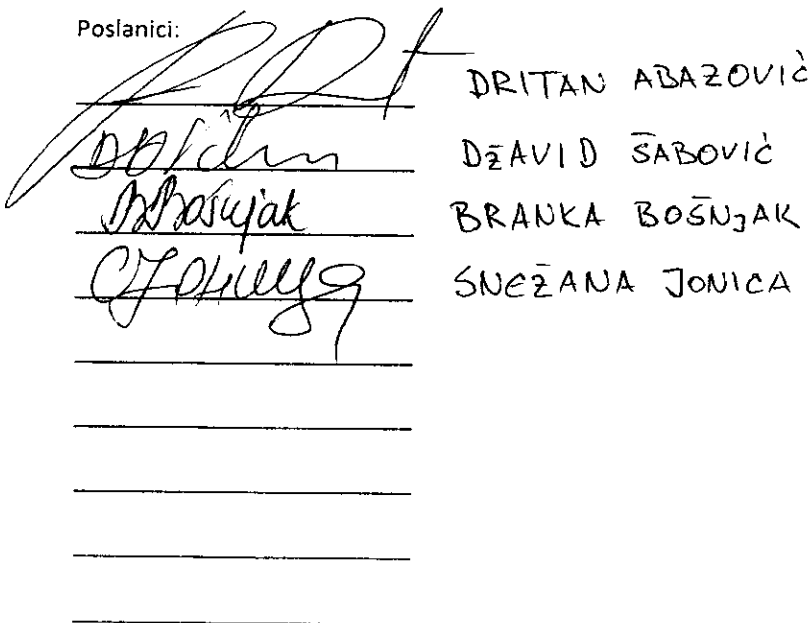 Poslanici:
DRITAN ABAZOVIĆ
DŽAVID ŠABOVIĆ
BBošnjak BRANKA BOŠNJAK
SNEŽANA JONICA